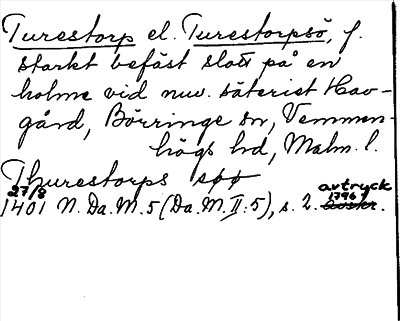 Turestorp el. Turestorpsö, f.
starkt befäst slott på en
holme vid nuv. säteriet Hav-
gård, Börringe sn, Vemmen-
högs hd, Malm. l.
Thurestorps søø
27/8 avtryck
1401 N. Da. M. 5 (Da. M. II:5), s. 2. 1796